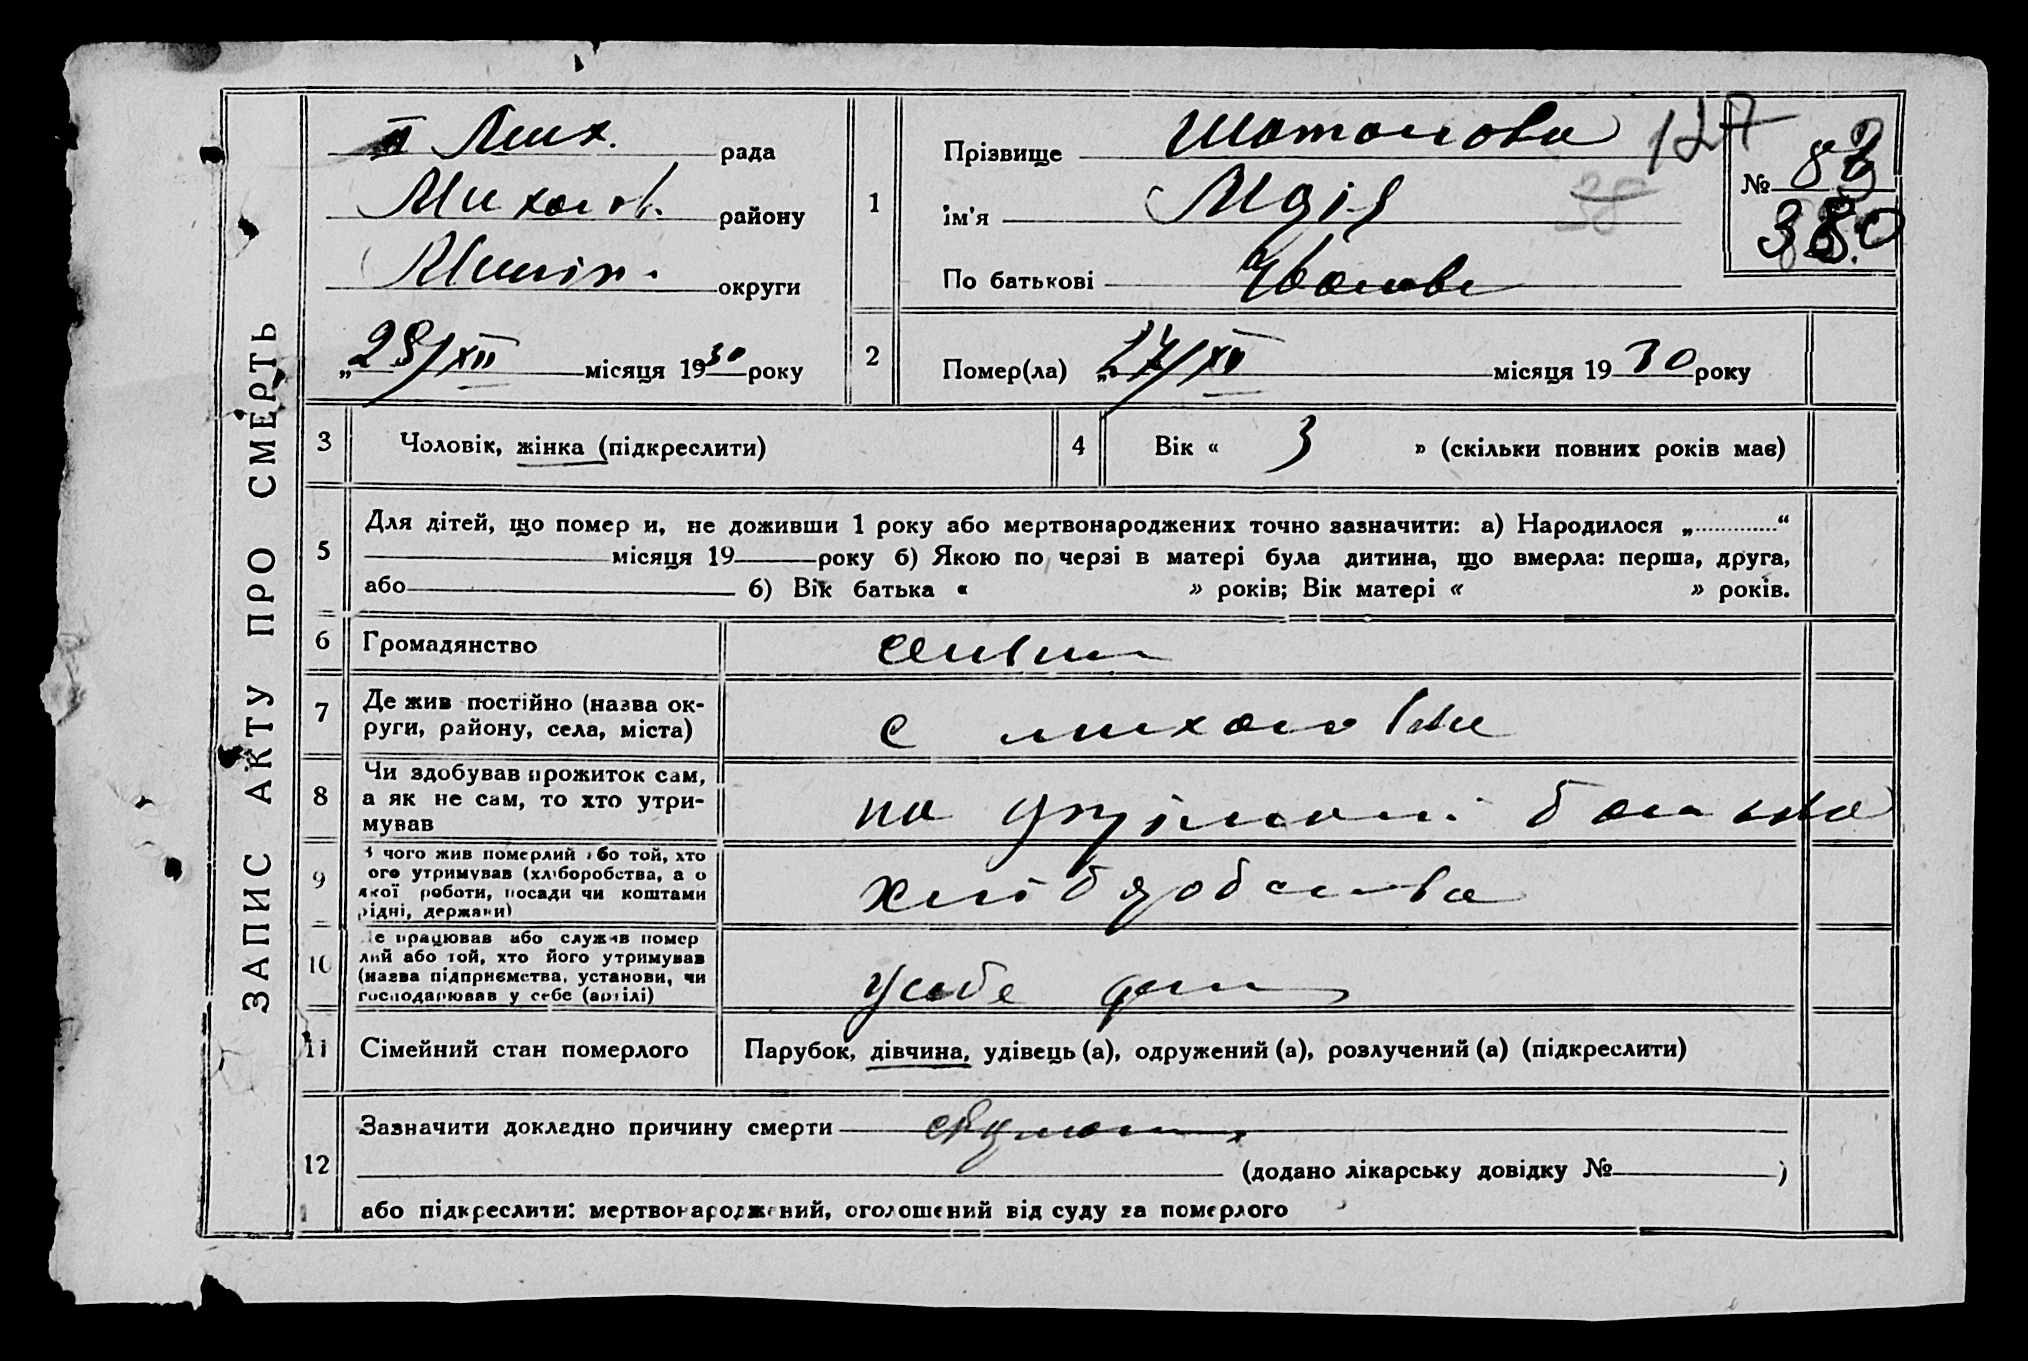 ЗАПИС АКТУ ПРО СМЕРТЬ
ІІ Мих. рада
Михайлів. району
округи
„28/XII місяця 1930 року
1
Прізвище
ім'я Марія
По батькові Іванова
127
№ 82
380
2
Помер(ла) „27/XII місяця 1930 року
3 Чоловік, жінка (підкреслити)
4 Вік « 3 » (скільки повних років має)
5
Для дітей, що померли, не доживши 1 року або мертвонароджених точно зазначити: а) Народилося „............“
місяця 19 року б) Якою по черзі в матері була дитина, що вмерла: перша, друга,
або б) Вік батька « » років; Вік матері « » років.
6 Громадянство
7 Де жив постійно (назва ок-
руги, району, села, міста)
с михайлівки
8 Чи здобував прожиток сам,
а як не сам, то хто утри-
мував
на утрімані батька
9 З чого жив померлий або той, хто
його утримував (хліборобства, а о
якої роботи, посади чи коштами
рідні, держави)
хліборобства
10 Де працював або служив помер
лий або той, хто його утримував
(назва підприємства, установи, чи
господарював у себе (артілі)
у себе дома
11 Сімейний стан померлого
Парубок, дівчина, удівець (а), одружений (а), розлучений (а) (підкреслити)
12
Зазначити докладно причину смерти
(додано лікарську довідку № )
або підкреслити: мертвонароджений, оголошений від суду за померлого